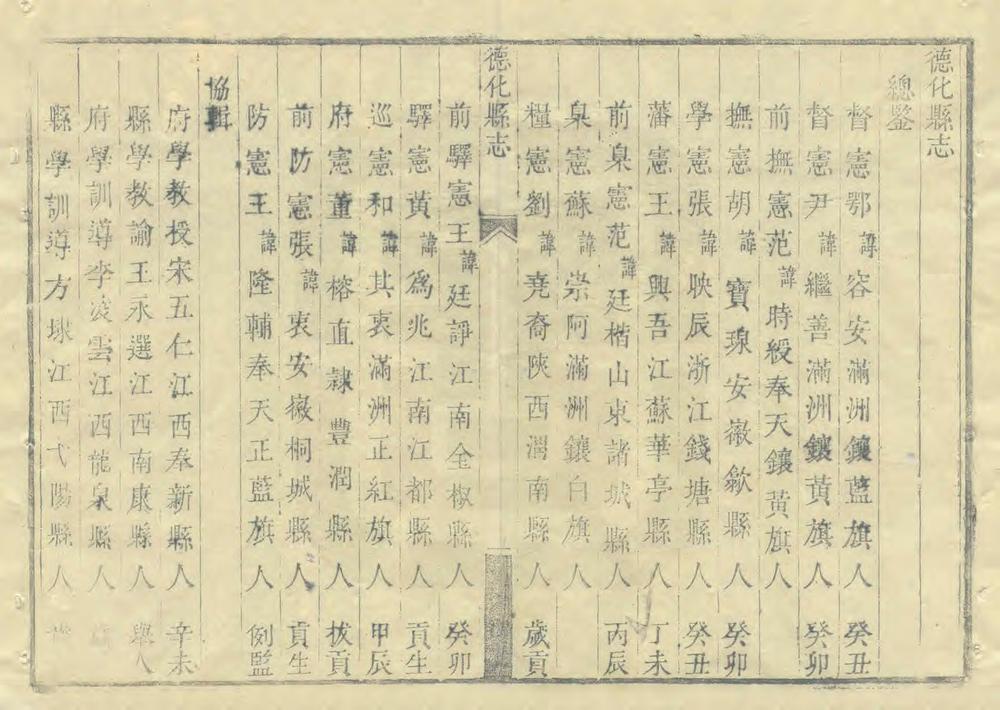 德化縣志
總鑒
督憲鄂諱容安滿洲鑲藍旗人癸丑
督憲尹諱繼善滿洲鑲黃旗人癸卯
前撫憲范諱時綬奉天鑲黃旗人
撫憲胡諱寶瑔安徽歙縣人癸卯
學憲張諱映辰浙江錢塘縣人癸丑
藩憲王諱興吾江蘇華亭縣人丁未
前臬憲范諱廷楷山東諸城縣人丙辰
臬憲蘇諱崇阿滿洲鑲白旗人
糧憲劉諱堯裔陝西渭南縣人歲貢
德化縣志
前驛憲王諱廷諍江南全椒縣人癸卯
驛憲黃諱為兆江南江都縣人貢生
巡憲和諱其衷滿洲正紅旗人甲辰
府憲董諱榕直隸豐潤縣人拔貢
前防憲張諱衷安徽桐城縣人貢生
防憲王諱隆輔奉天正藍旗人例監
協輯
府學教授宋五仁江西奉新縣人辛未
縣學教諭王永選江西南康縣人舉人
府學訓導李凌雲江西龍泉縣人
縣學訓導方埭江西弋陽縣人